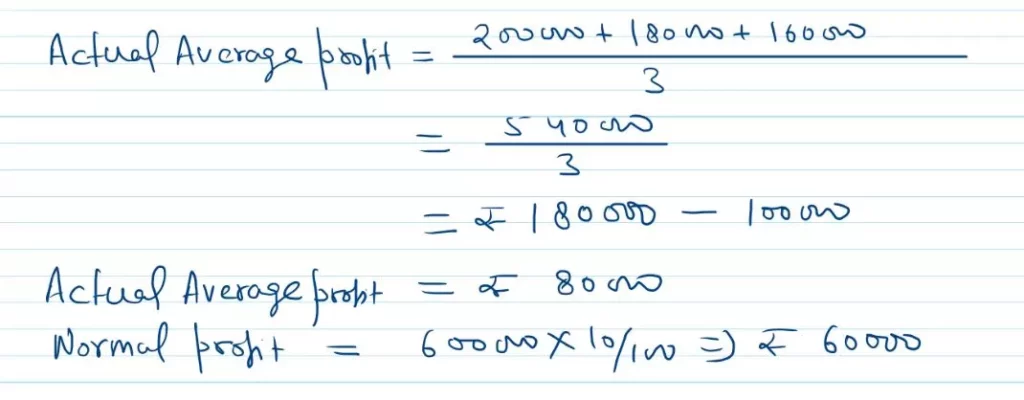 Actual Average profit = 200000 + 180000 + 160000
3
= 540000
3
= ₹ 180000 - 100000
Actual Average profit = ₹ 80000
Normal profit = 600000 x 10/100 => ₹ 60000